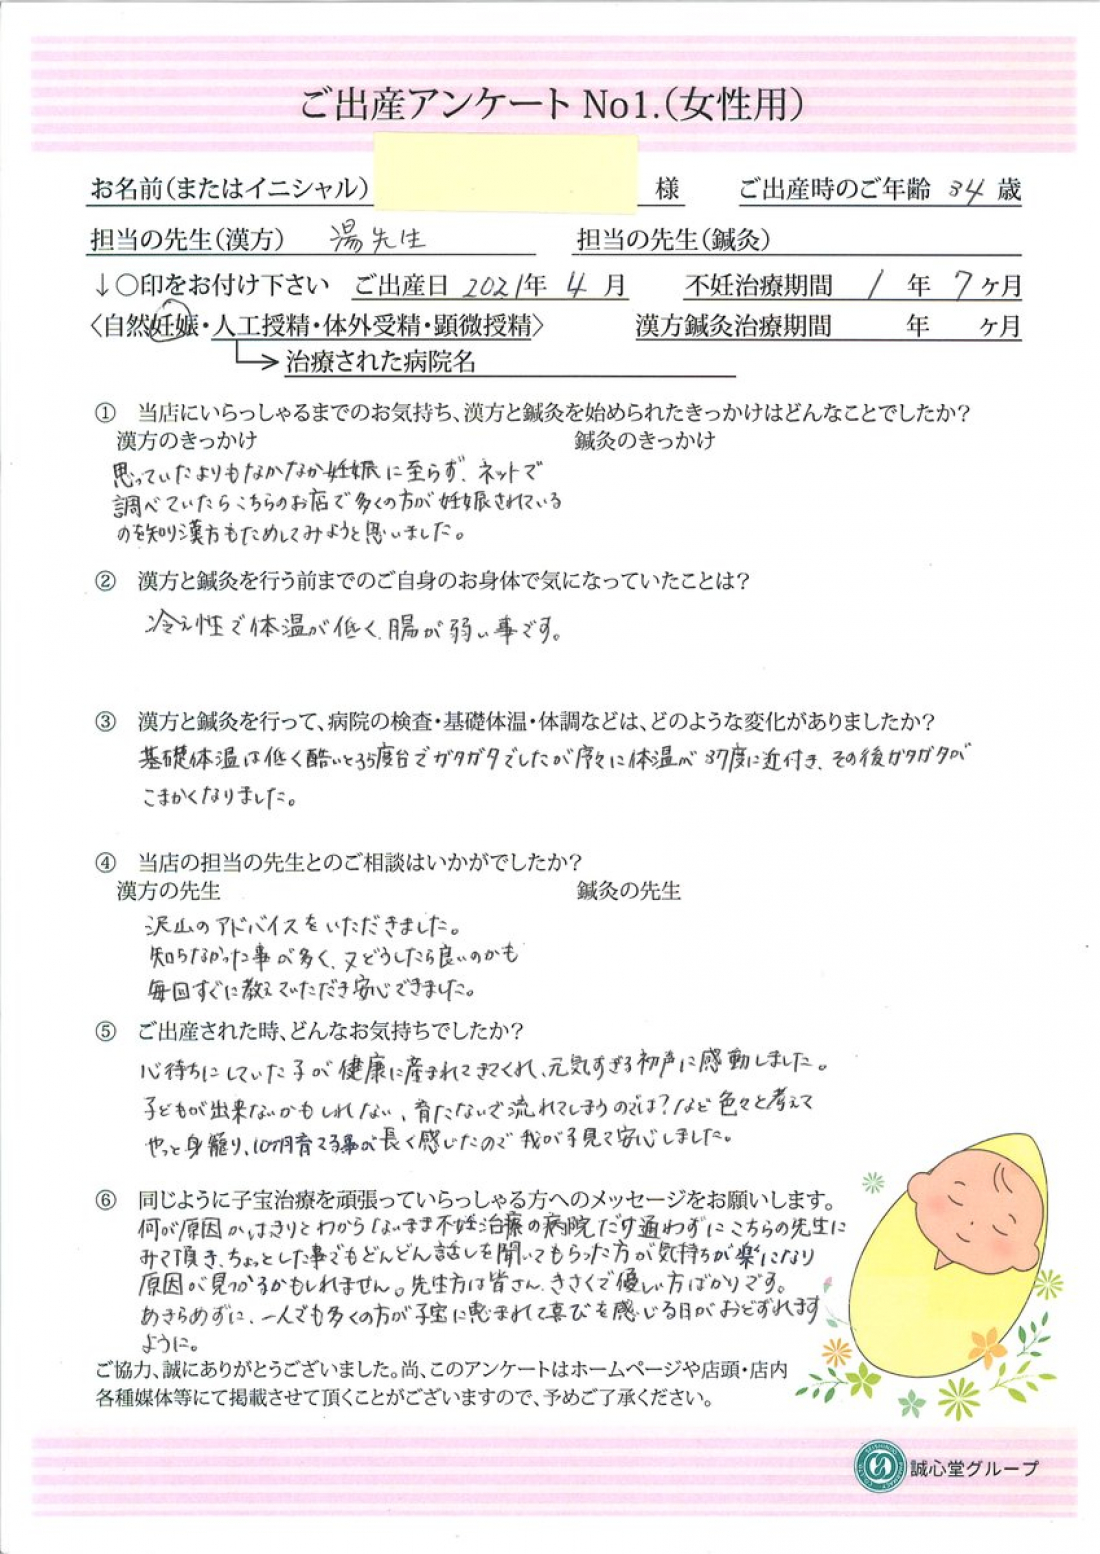 ご出産アンケート No1.(女性用)
お名前(またはイニシャル) 様 ご出産時のご年齢 34 歳
担当の先生(漢方) 湯先生 担当の先生(鍼灸)
↓○印をお付け下さい ご出産日 2021年 4 月 不妊治療期間 1 年 7 ヶ月
〈自然妊娠・人工授精・体外受精・顕微授精〉 漢方鍼灸治療期間 年 ヶ月
治療された病院名
① 当店にいらっしゃるまでのお気持ち、漢方と鍼灸を始められたきっかけはどんなことでしたか?
漢方のきっかけ 鍼灸のきっかけ
思っていたよりもなかなか妊娠に至らず、ネットで
調べていたらこちらのお店で多くの方が妊娠されている
のを知り漢方もためしてみようと思いました。
② 漢方と鍼灸を行う前までのご自身のお身体で気になっていたことは?
冷え性で体温が低く、腸が弱い事です。
③ 漢方と鍼灸を行って、病院の検査・基礎体温・体調などは、どのような変化がありましたか?
基礎体温は低く酷いと35度台でガタガタでしたが序々に体温が37度に近付き、その後ガタガタが
こまかくなりました。
④ 当店の担当の先生とのご相談はいかがでしたか?
漢方の先生 鍼灸の先生
沢山のアドバイスをいただきました。
知らなかった事が多く、又どうしたら良いのかも
毎回すぐに教えていただき安心できました。
⑤ ご出産された時、どんなお気持ちでしたか?
心待ちにしていた子が健康に産まれてきてくれ、元気すぎる初声に感動しました。
子どもが出来ないかもしれない、育たないで流れてしまうのでは?など色々と考えて
やっと身籠り、10ヶ月育てる事が長く感じたので我が子見て安心しました。
⑥ 同じように子宝治療を頑張っていらっしゃる方へのメッセージをお願いします。
何が原因かはっきりとわからないまま不妊治療の病院だけ通わずにこちらの先生に
みて頂き、ちょっとした事でもどんどん話しを聞いてもらった方が気持ちが楽になり
原因が見つかるかもしれません。先生方は皆さん、きさくで優しい方ばかりです。
あきらめずに、一人でも多くの方が子宝に恵まれて喜びを感じる日がおとずれます
ように。
ご協力、誠にありがとうございました。尚、このアンケートはホームページや店頭・店内
各種媒体等にて掲載させて頂くことがございますので、予めご了承ください。
誠心堂グループ